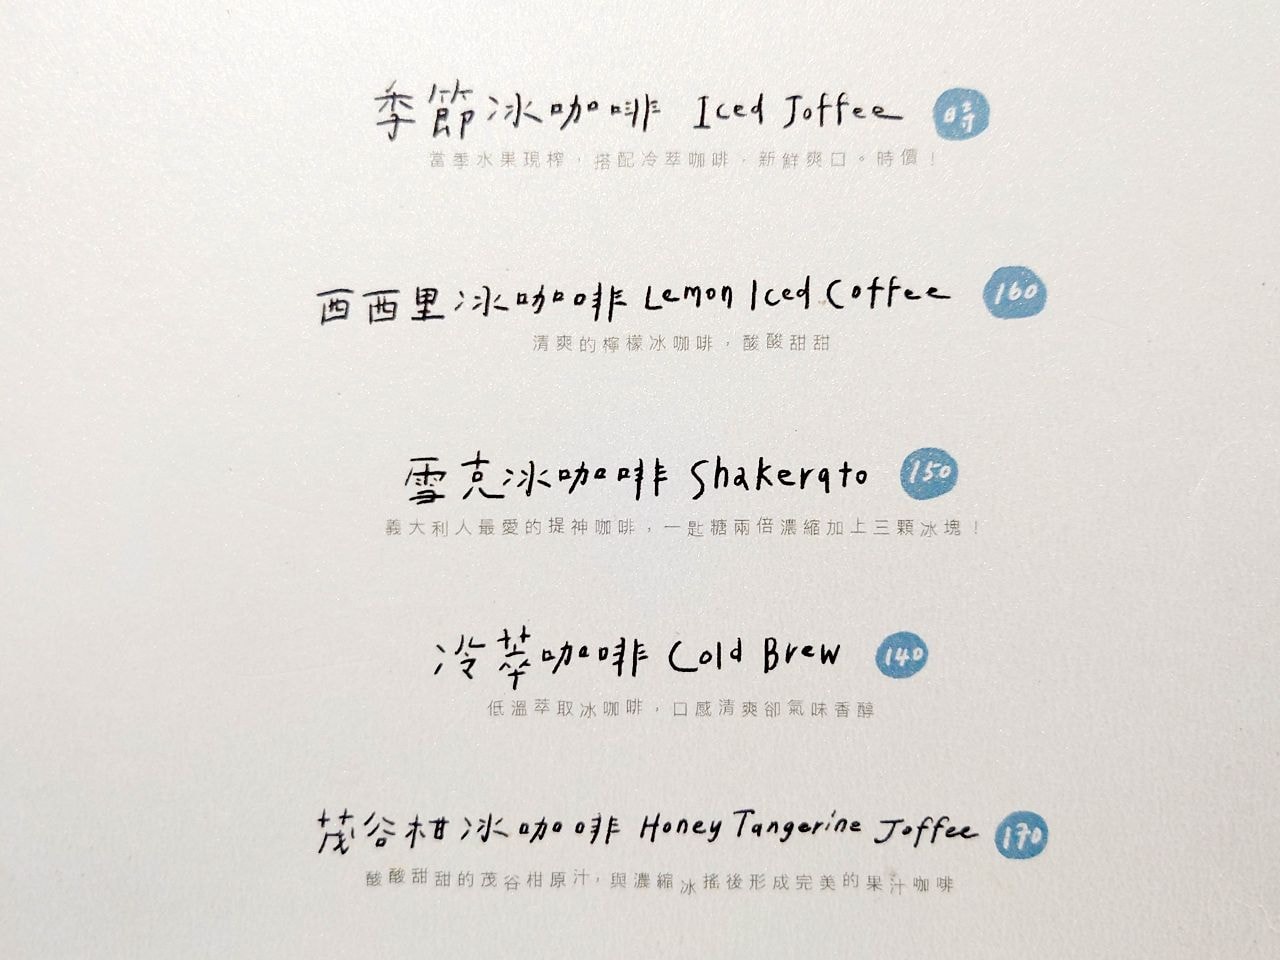 季節冰咖啡 Iced Joffee 時
當季水果現榨，搭配冷萃咖啡，新鮮爽口。時價！
西西里冰咖啡 Lemon Iced Coffee 160
清爽的檸檬冰咖啡，酸酸甜甜
雪克冰咖啡 Shakerato 150
義大利人最愛的提神咖啡，一匙糖兩倍濃縮加上三顆冰塊！
冷萃咖啡 Cold Brew 140
低溫萃取冰咖啡，口感清爽卻氣味香醇
茂谷柑冰咖啡 Honey Tangerine Joffee 170
酸酸甜甜的茂谷柑原汁，與濃縮冰搖後形成完美的果汁咖啡